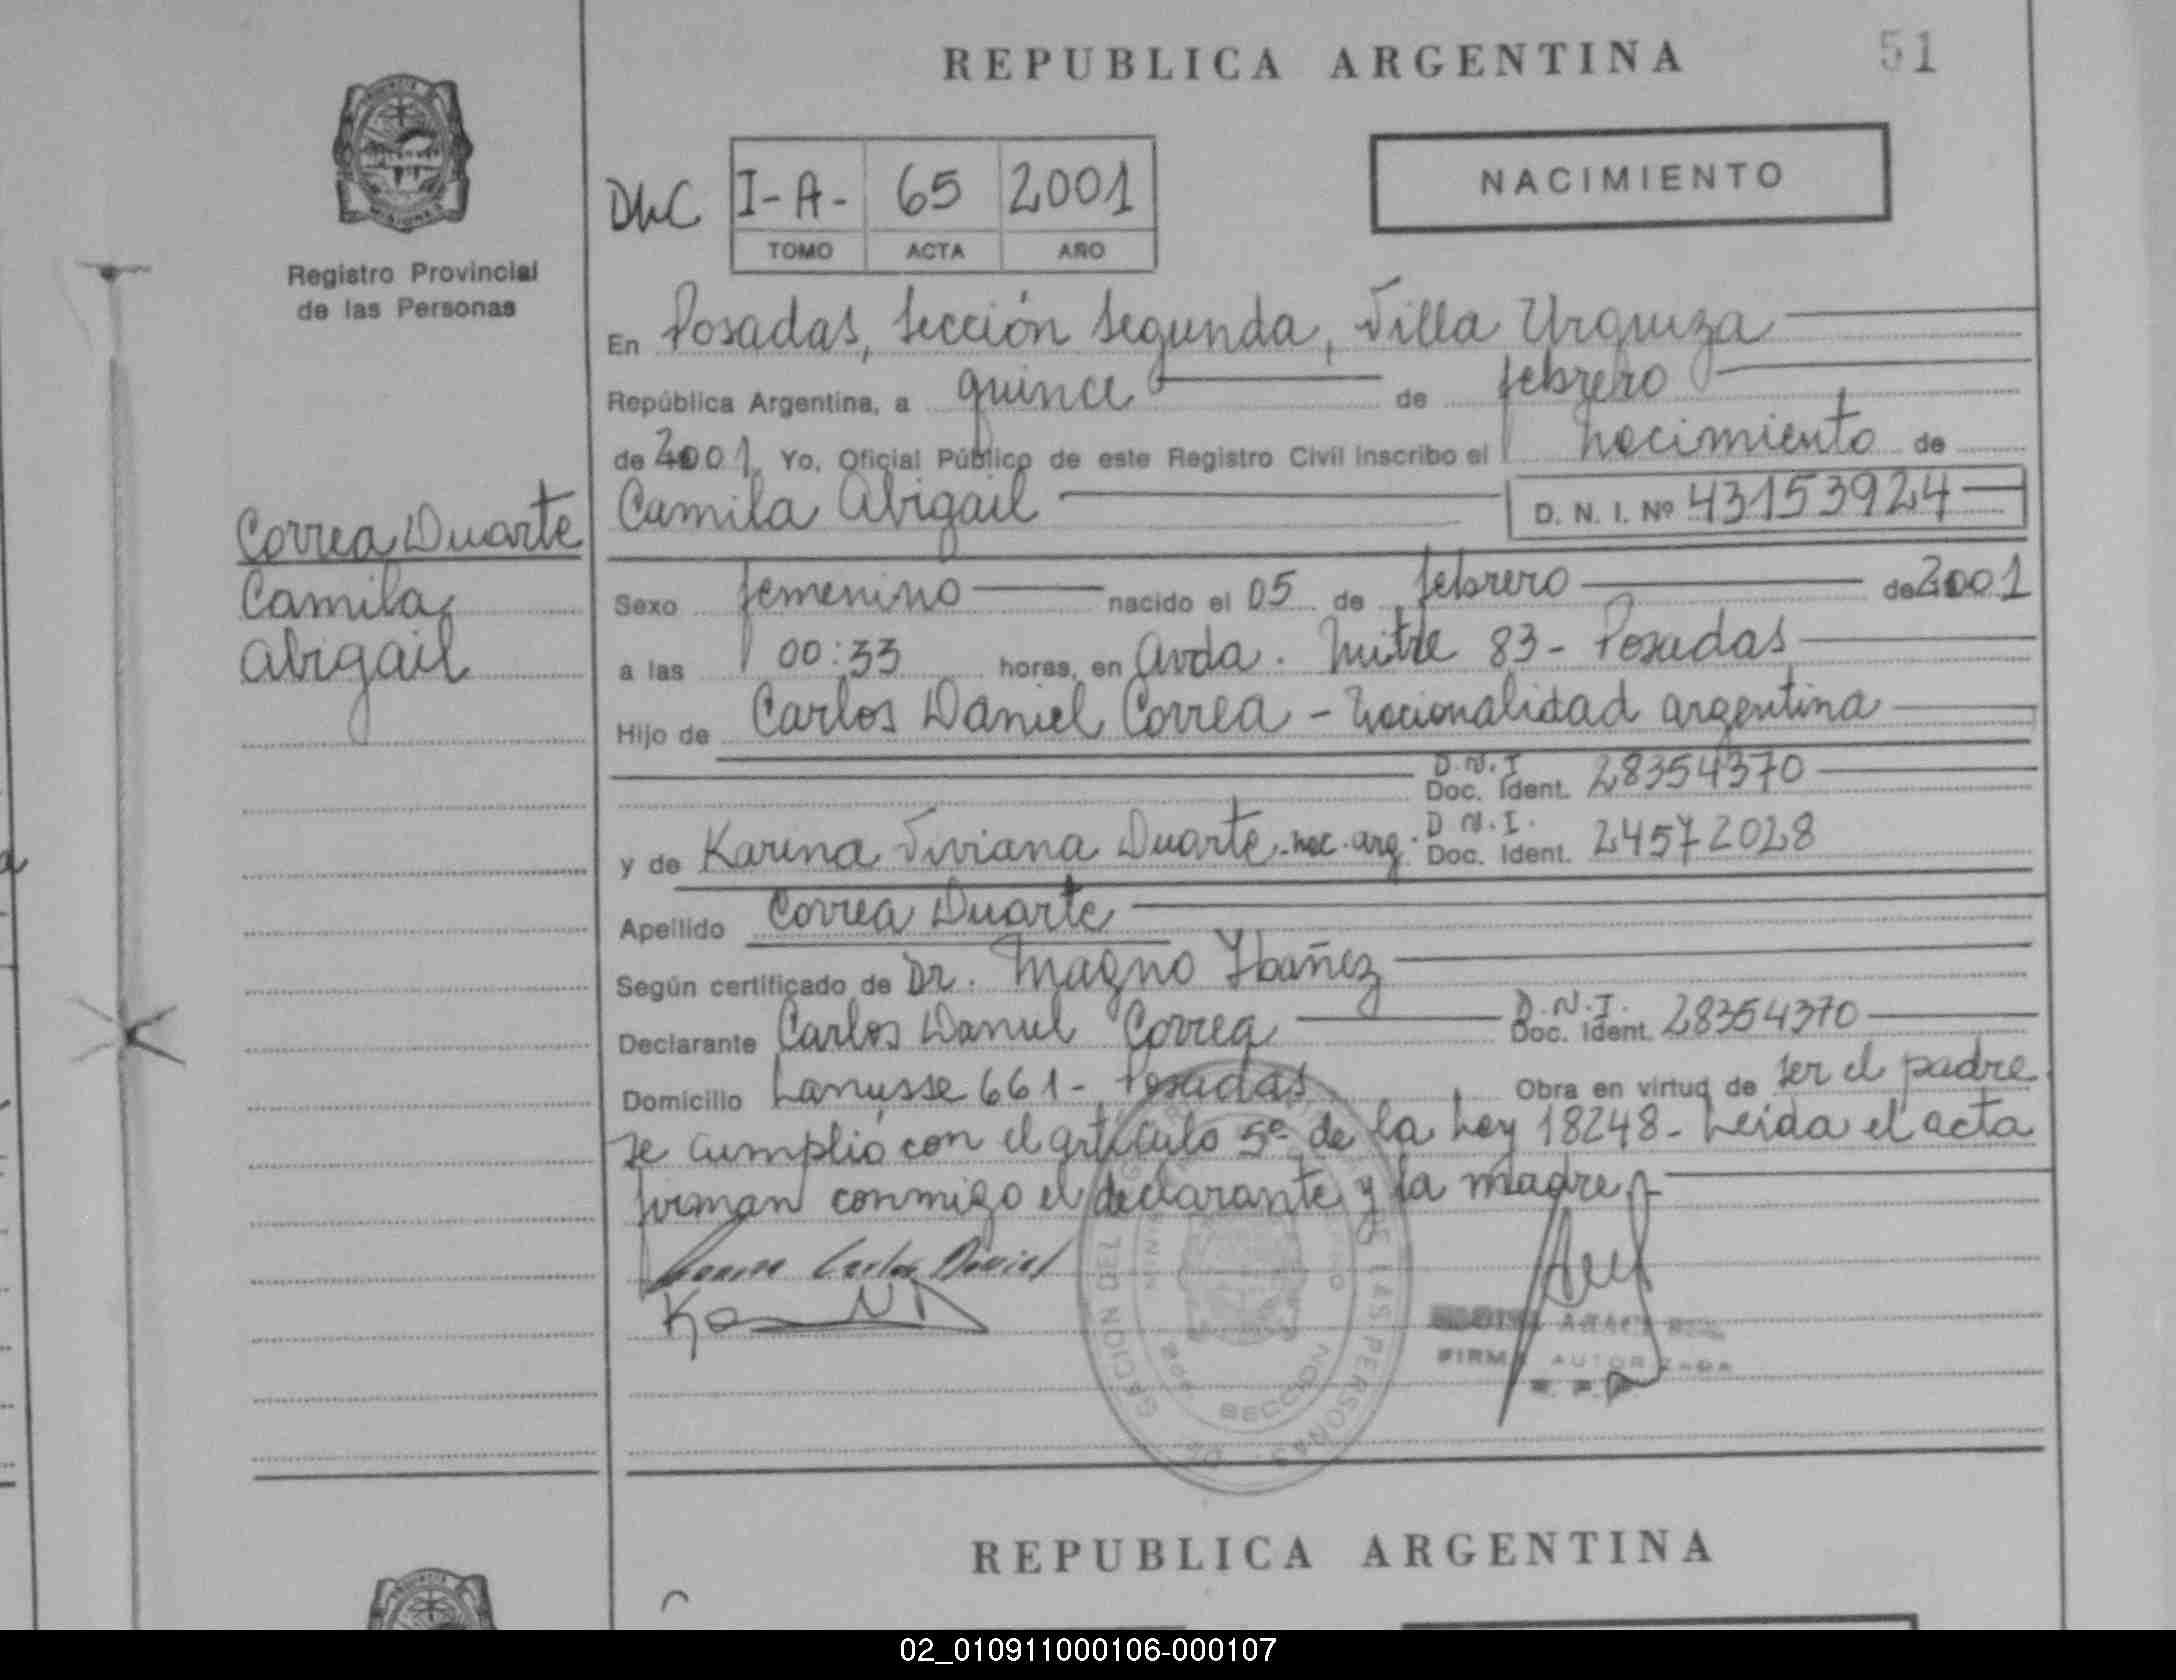 REPUBLICA ARGENTINA
51
Registro Provincial
de las Personas
DLC
I-A- 65 2001
TOMO ACTA AÑO
NACIMIENTO
En Posadas, Sección Segunda, Villa Urquiza
República Argentina, a quince de febrero
de 2001. Yo, Oficial Público de este Registro Civil inscribo el nacimiento de
Camila Abigail D. N. I. Nº 43153924
Correa Duarte
Camila
Abigail
Sexo femenino nacido el 05 de febrero de 2001
a las 00:33 horas, en Avda. Mitre 83 - Posadas
Hijo de Carlos Daniel Correa - nacionalidad argentina
D.N.I
Doc. Ident. 28354370
D N.I.
y de Karina Viviana Duarte - nac. arg. Doc. Ident. 24572028
Apellido Correa Duarte
Según certificado de Dr. Magno Ibañez
D.N.I.
Declarante Carlos Daniel Correa Doc. Ident. 28354370
Domicilio Lanusse 661 - Posadas Obra en virtud de ser el padre.
Se cumplió con el artículo 5º de la Ley 18248 - Leida el acta
firman conmigo el declarante y la madre
Correa Carlos Daniel
SECCION
FIRMA AUTORIZADA
REPUBLICA ARGENTINA
02_010911000106-000107